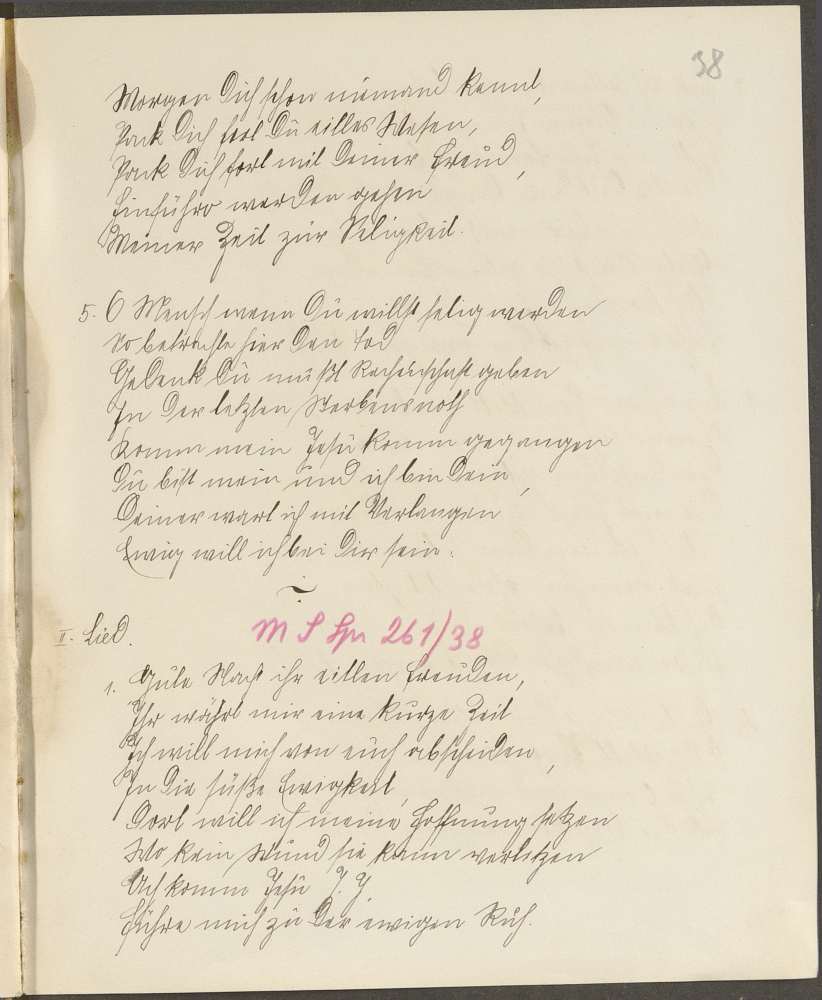 38
Morgen Dich schon niemand kennt,
Pack Dich fort Du eitles Wesen,
Pack Dich fort mit Deiner Freud,
werden gehen
Meiner Zeit zur Seligkeit.
5. O Mensch wenn Du willst selig werden
So betrachte hier den Tod
Gedenk Du mußt Rechenschaft geben
In der letzten Sterbensnoth
Komm mein Jesu komm gegangen
Du bist mein und ich bin Dein,
Deiner wart ich mit Verlangen
Ewig will ich bei Dir sein.
II. Lied.
M S Spr 261/38
1. Gute Nacht ihr eitlen Freuden,
Ihr währt nur eine kurze Zeit
Ich will mich von euch abscheiden,
In die süße Ewigkeit,
Dort will ich meine Hoffnung setzen
Wo kein Wund sie kann verletzen
Ach komm Jesu J. J.
Führe mich zu der ewigen Ruh.